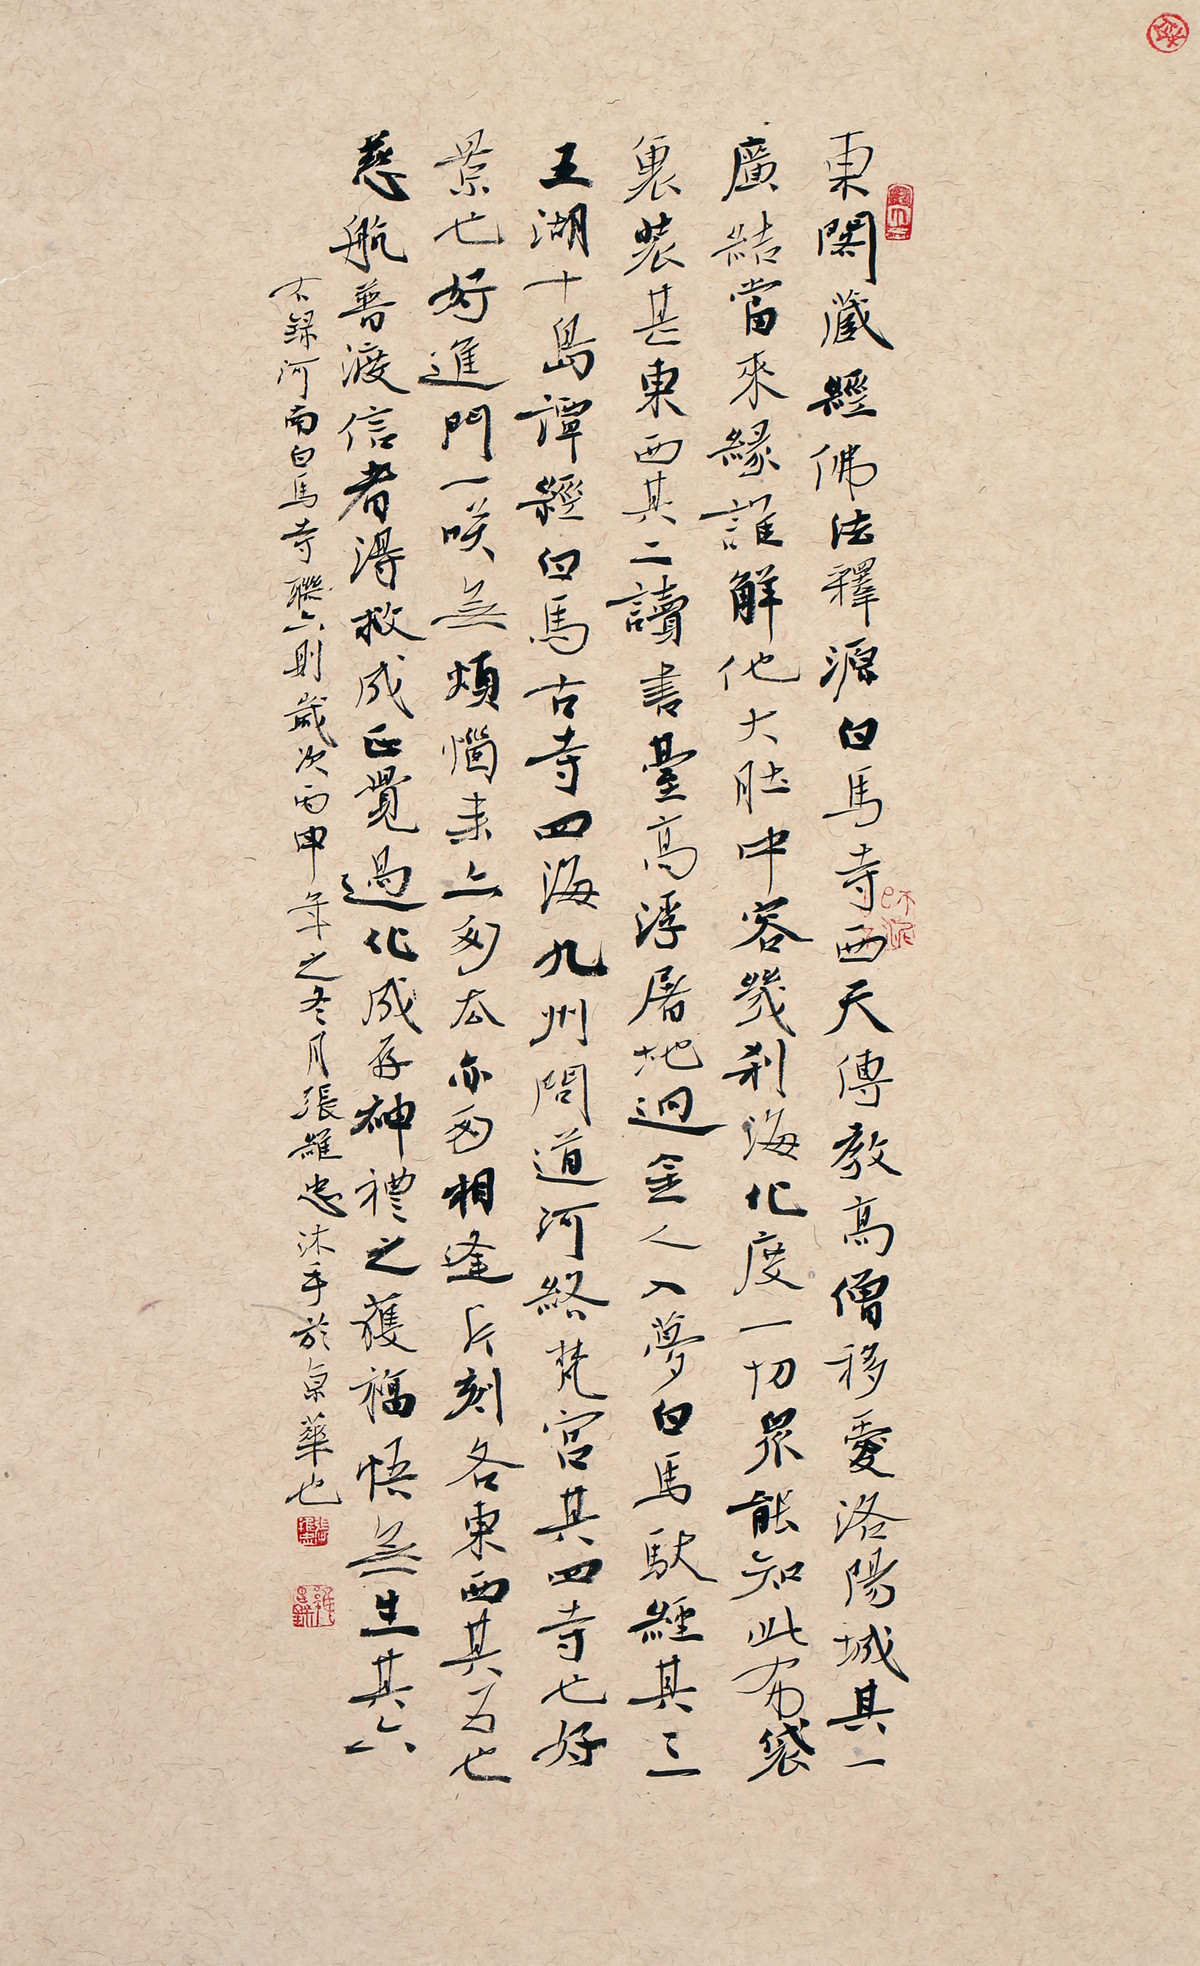 東閣藏經佛法釋源白馬寺西天傳教高僧移愛洛陽城其一
廣結當來緣誰解他大肚中容幾刹海化度一切眾能知此布袋
裏裝甚東西其二讀書臺高浮屠地迥金人入夢白馬馱經其三
五湖十島譚經白馬古寺四海九州問道河終梵宮其四寺也好
景也好進門一咲無煩惱來亦匆去亦匆相逢片刻各東西其五也
慈航普渡信者得救成正覺過化成存神禮之獲福悟無生其六
右錄河南白馬寺聯六則歲次丙申年之冬月張羅忠沐手於京華也